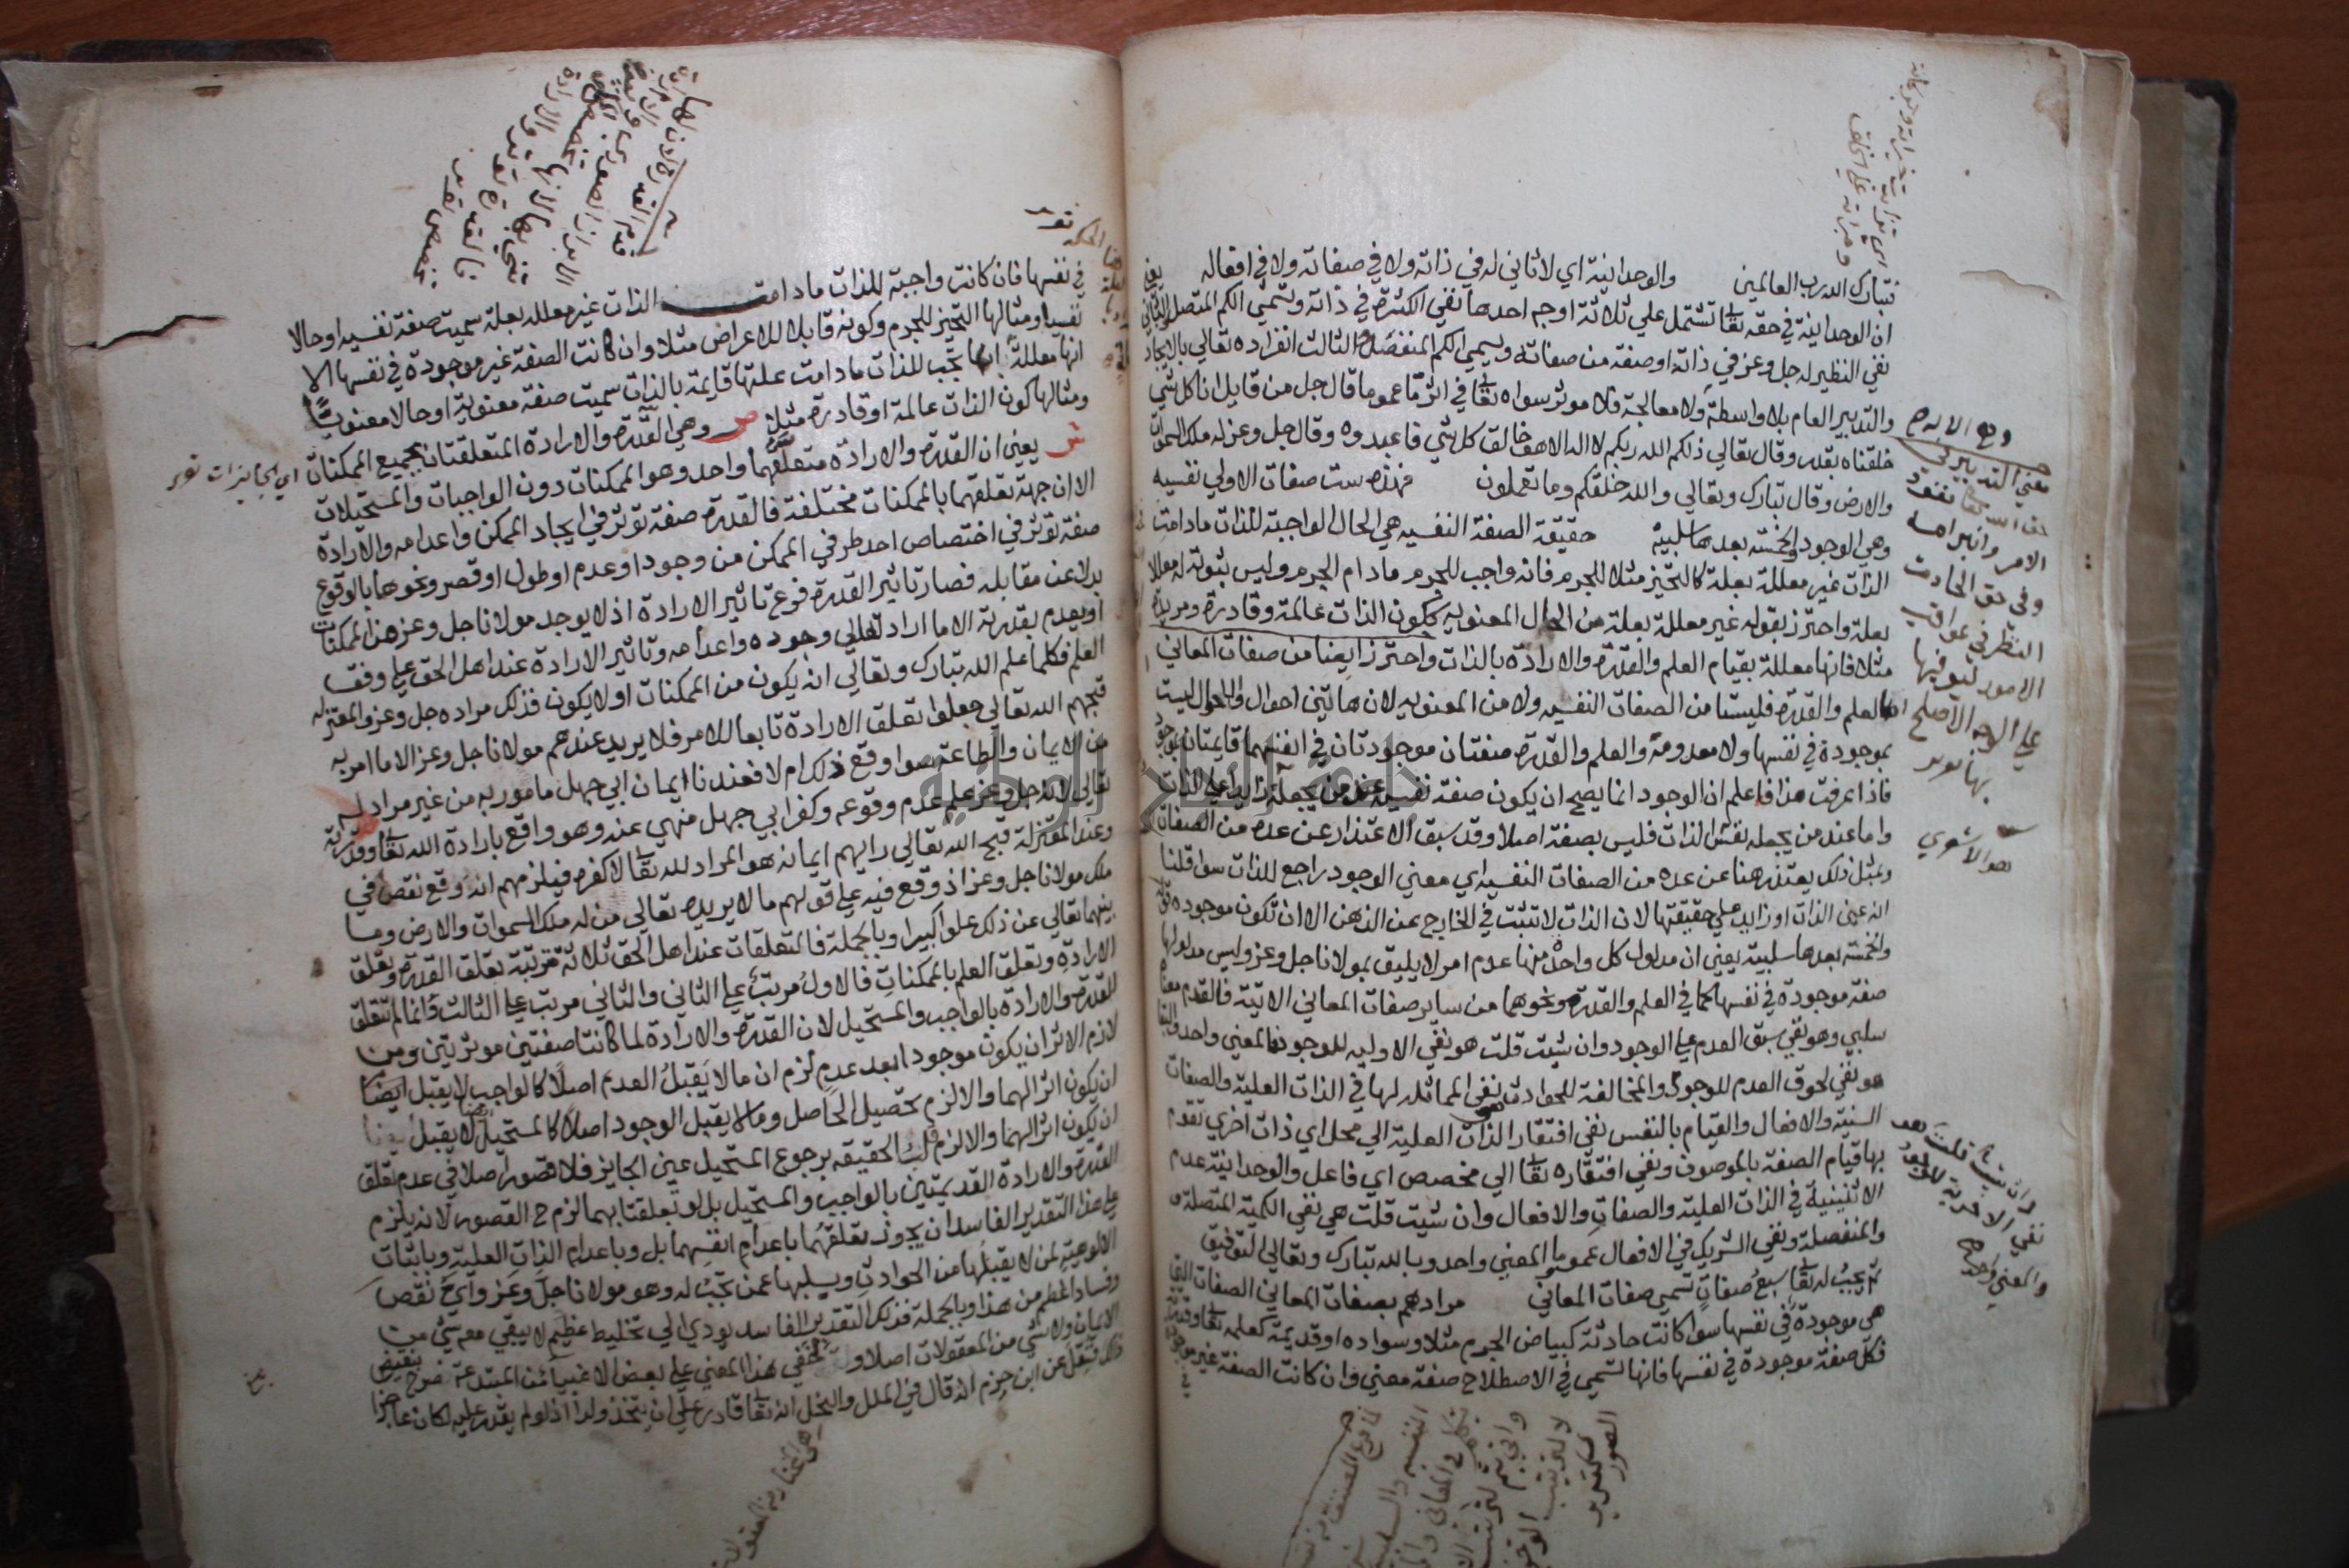 فتبارك الله رب العالمين والوحدانية اي لا ثاني له في ذاته ولا في صفاته ولا في افعاله يعني
ان الوحدانية في حقه تعا تشتمل علي ثلاثة اوجه احدها نفي الكثرة في ذاته وتسمي الكم المتصل والثاني
نفي النظير له جل وعز في ذاته او صفة من صفاته ويسمي الكم المنفصل الثالث انفراده تعالي بالايجاد
والتدبير العام بلا واسطة ولا معالجة فلا موثر سواه تعا في اثر ما عموما قال جل من قايل انا كل شي
خلقناه بقدر وقال تعالي ذلكم الله ربكم لا اله الا هو خالق كل شي فاعبدوه وقال جل وعز له ملك السموات
والارض وقال تبارك وتعالي والله خلقكم وما تعملون فهذه ست صفات الاولي نفسيه
وهي الوجود والخمسة بعدها سلبية حقيقة الصفة النفسيه هي الحال الواجبة للذات مادامت
الذات غير معللة بعلة كالتحيز مثلا للجرم فانه واجب للجرم مادام الجرم وليس ثبوته له معللا
بعلة واحترز بقوله غير معللة بعلة من الحال المعنويه ككون الذات عالمة وقادرة ومريدة
مثلا فانها معللة بقيام العلم والقدرة والارادة بالذات واحترز ايضا من صفات المعاني
كالعلم والقدرة فليستا من الصفات النفسيه ولا من المعنويه لان هاتين احوال والحوال ليست
بموجودة في نفسها ولا معدومة والعلم والقدرة صفتان موجودتان في انفسهما قايمتان بموجود
فاذا عرفت هذا فاعلم ان الوجود انما يصح ان يكون صفة نفسية عند من يجعله زايدا علي الذات
واما عند من يجعله نفس الذات فليس بصفة اصلا وقد سبق الاعتذار عن عده من الصفات
وبمثل ذلك يعتذر هنا عن عده من الصفات النفسيه اي معني الوجود راجع للذات سوا قلنا
انه عين الذات او زايد علي حقيقتها لان الذات لا تثبت في الخارج عن الذهن الا ان تكون موجوده قوله
والخمسة بعدها سلبية يعني ان مدلول كل واحدة منها عدم امر لا يليق بمولانا جل وعز وليس مدلولها
صفة موجودة في نفسها كما في العلم والقدرة ونحوهما من ساير صفات المعاني الاتية فالقدم معناه
سلبي وهو نفي سبق العدم علي الوجود وان شيت قلت هو نفي الاوليه للوجود والمعني واحد والبقا
هو نفي لحوق العدم للوجود والمخالفة للحوادث نفي المماثلة لها في الذات العلية والصفات
السنية والافعال والقيام بالنفس نفي افتقار الذات العلية الي محل اي ذات اخري تقوم
بها قيام الصفة بالموصوف ونفي افتقاره تعا الي مخصص اي فاعل والوحدانية عدم
الاثنينية في الذات العلية والصفات والافعال وان شيت قلت هي نفي الكمية المتصلة
والمنفصلة ونفي الشريك في الافعال عموما والمعني واحد وبالله تبارك وتعالي التوفيق
ثم يجب له تعا سبع صفات تسمي صفات المعاني مرادهم بصفات المعاني الصفات التي
هي موجودة في نفسها سوا كانت حادثة كبياض الجرم مثلا وسواده او قديمة كعلمه تعا وقدرته
فكل صفة موجودة في نفسها فانها تسمي في الاصطلاح صفة معني وان كانت الصفة غير موجودة
معني التدبير في
حق الله
الامر وابرامه
وفي حق الحادث
النظر في عواقب
الامور ليوقعها
علي الوجه الاصلح
هو الاشعري
وان شيت قلت هو
نفي الاخرية للوجود
والمعني واحد
في نفسها فان كانت واجبة للذات مادامت الذات غير معلله بعلة سميت صفة نفسيه او حالا
نفسيا ومثالها التحيز للجرم وكونه قابلا للاعراض مثلا وان كانت الصفة غير موجودة في نفسها الا
انها معللة انما تجب للذات مادامت علتها قايمة بالذات سميت صفة معنوية او حالا معنويا
ومثالها كون الذات عالمة او قادرة مثلا ص وهي القدرة والارادة المتعلقتان بجميع الممكنات
اي الجايزات
ش يعني ان القدرة والارادة متعلقهما واحد وهو الممكنات دون الواجبات والمستحيلات
الا ان جهة تعلقهما بالممكنات مختلفة فالقدرة صفة توثر في ايجاد الممكن واعدامه والارادة
صفة توثر في اختصاص احد طرفي الممكن من وجود او عدم او طول او قصر ونحوها بالوقوع
بدلا عن مقابله فصار تاثير القدرة فرع تاثير الارادة اذ لا يوجد مولانا جل وعز من الممكنات
او يعدم بقدرته الا ما اراد تعالي وجوده واعدامه وتاثير الارادة عند اهل الحق علي وفق
العلم فكلما علم الله تبارك وتعالي انه يكون من الممكنات او لا يكون فذلك مراده جل وعز والمعتزله
قبحهم الله تعالي جعلوا تعلق الارادة تابعا للامر فلا يريد عندهم مولانا جل وعز الا ما امر به
من الايمان والطاعة سوا وقع ذلك ام لا فعندنا ايمان ابي جهل مامور به من غير مراد له
تعالي لانه جل وعز علم عدم وقوعه وكفر ابي جهل منهي عنه وهو واقع بارادة الله تعا وقدرته
وعند المعتزلة قبح الله تعالي رايهم ايمانه هو المراد لله تعا لا كفره فيلزمهم انه وقع نقص في
ملك مولانا جل وعز اذ وقع فيه علي قولهم ما لا يريده تعالي من له ملك السموات والارض وما
بينهما تعالي عن ذلك علوا كبيرا وبالجملة فالتعلقات عند اهل الحق ثلاثة مرتبة تعلق القدرة وتعلق
الارادة وتعلق العلم بالممكنات فالاول مرتب علي الثاني والثاني مرتب علي الثالث وانما لم تتعلق
القدرة والارادة بالواجب والمستحيل لان القدرة والارادة لما كانتا صفتين موثرتين ومن
لازم الاثر ان يكون موجودا بعد عدم لزم ان ما لا يقبل العدم اصلا كالواجب لا يقبل ايضا
ان يكون اثرا لهما والا لزم تحصيل الحاصل وما لا يقبل الوجود اصلا كالمستحيل لا يقبل ايضا
ان يكون اثرا لهما والا لزم قلب الحقيقه برجوع المستحيل عين الجايز فلا قصور اصلا في عدم تعلق
القدرة والارادة القديمتين بالواجب والمستحيل بل لو تعلقتا بهما لزم ح القصور لانه يلزم
علي هذا التقدير الفاسد ان يجوز تعلقهما باعدام انفسهما بل وباعدام الذات العلية وباثبات
الالوهية لمن لا يقبلها من الحوادث ويسلبها عمن تجب له وهو مولانا جل وعز واي نقص
وفساد اعظم من هذا وبالجملة فذلك التقدير الفاسد يودي الي تخليط عظيم لا يبقي معه شي من
الايمان ولا شي من المعقولات اصلا ولخفي هذا المعني علي بعض الاغبيا من المبتدعة صرح بنقيض
ذلك فنقل عن ابن حزم انه قال في الملل والنحل انه تعا قادر علي ان يتخذ ولدا اذ لو لم يقدر عليه لكان عاجزا